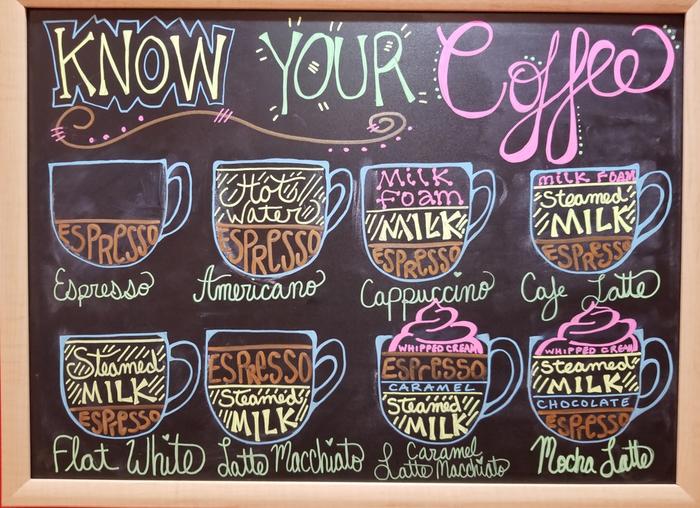 KNOW YOUR Coffee
ESPRESSO
Espresso
Hot
Water
ESPRESSO
Americano
Milk
Foam
MILK
ESPRESSO
Cappuccino
MILK FOAM
Steamed
MILK
ESPRESSO
Cafe Latte
Steamed
MILK
ESPRESSO
Flat White
ESPRESSO
Steamed
MILK
Latte Macchiato
WHIPPED CREAM
ESPRESSO
CARAMEL
Steamed
MILK
Caramel
Latte Macchiato
WHIPPED CREAM
Steamed
MILK
CHOCOLATE
ESPRESSO
Mocha Latte